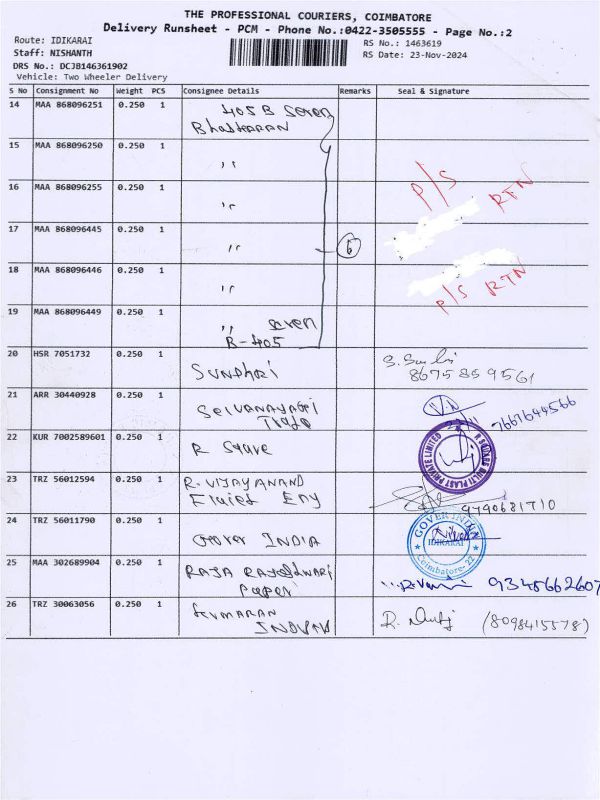 THE PROFESSIONAL COURIERS, COIMBATORE
Delivery Runsheet - PCM - Phone No.:0422-3505555 - Page No.:2
Route: IDIKARAI
RS No.: 1463619
Staff: NISHANTH
RS Date: 23-Nov-2024
DRS No.: DCJB146361902
Vehicle: Two Wheeler Delivery
S No Consignment No Weight PCS Consignee Details Remarks Seal & Signature
14 MAA 868096251 0.250 1 405 B Seven
Bhaskaran
15 MAA 868096250 0.250 1 ,,
P/S RTN
16 MAA 868096255 0.250 1 ,,
17 MAA 868096445 0.250 1 ,, 6
18 MAA 868096446 0.250 1 ,,
P/S RTN
19 MAA 868096449 0.250 1 ,, Seven
B-405
20 HSR 7051732 0.250 1 SUNDHARI
8675859561
21 ARR 30440928 0.250 1 Selvanayagri
7667644566
22 KUR 7002589601 0.250 1 R Square
R SQUARE MULTI PLAST PRIVATE LIMITED
23 TRZ 56012594 0.250 1 R. VIJAY ANAND
9790681710
24 TRZ 56011790 0.250 1 Gover INDIA
GOVER INDIA
IDIKARAI
Coimbatore- 22
25 MAA 302689904 0.250 1 RAJA RAJESHWARI
Paper
9345662607
26 TRZ 30063056 0.250 1 KUMARAN
(8098415578)